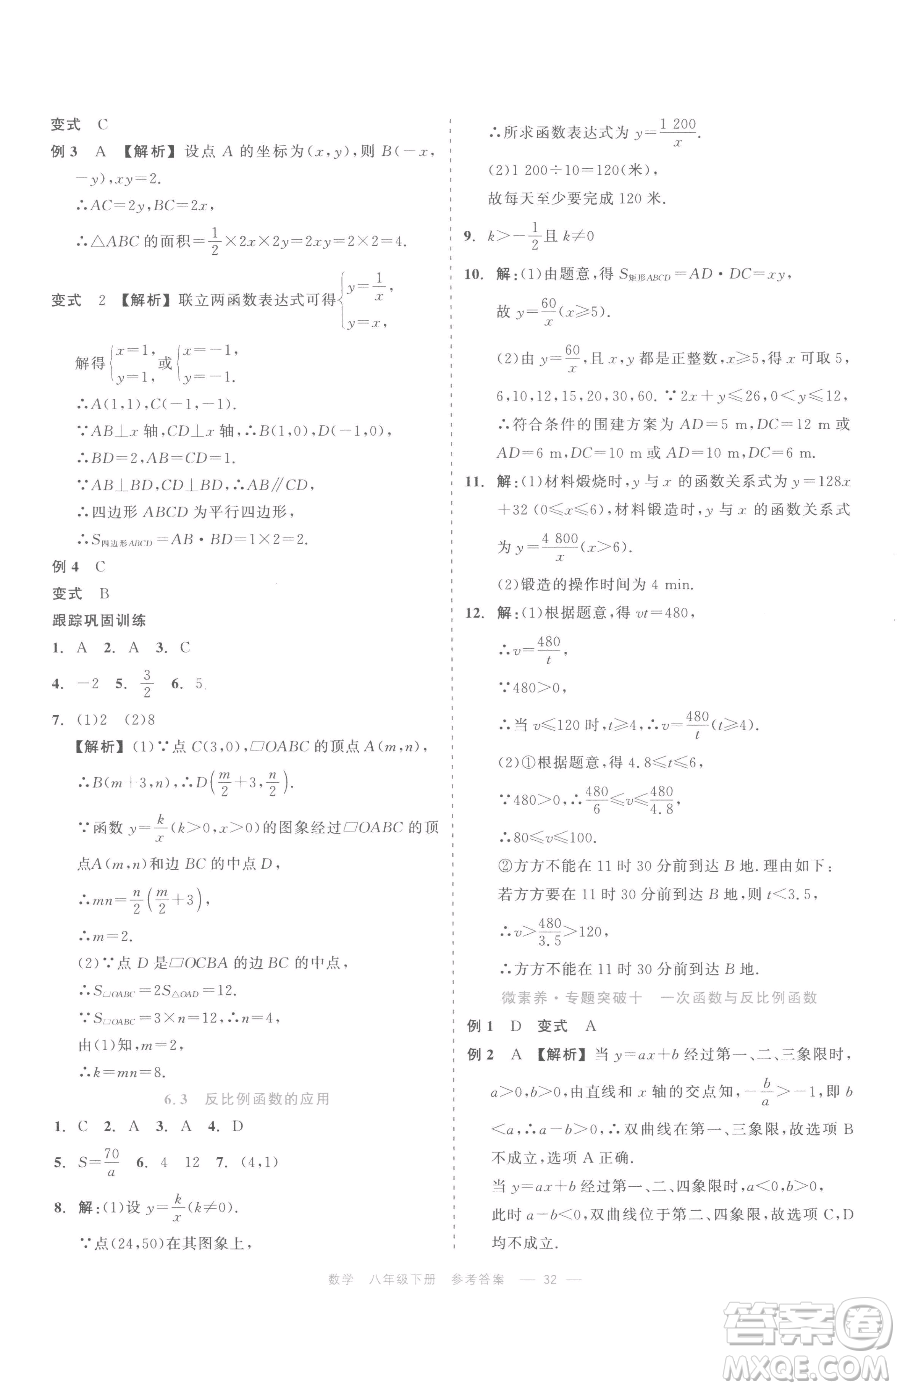 变式 C
例 3 A 【解析】设点 A 的坐标为(x,y),则 B(－x,
－y),xy=2.
∴AC=2y,BC=2x,
∴△ABC 的面积=1/2×2x×2y=2xy=2×2=4.
变式 2 【解析】联立两函数表达式可得{y=1/x, y=x,
解得{x=1, y=1,或{x=－1, y=－1.
∴A(1,1),C(－1,－1).
∵AB⊥x 轴,CD⊥x 轴,∴B(1,0),D(－1,0),
∴BD=2,AB=CD=1.
∵AB⊥BD,CD⊥BD,∴AB∥CD,
∴四边形 ABCD 为平行四边形,
∴S四边形ABCD=AB·BD=1×2=2.
例 4 C
变式 B
跟踪巩固训练
1. A 2. A 3. C
4. －2 5. 3/2 6. 5
7. (1)2 (2)8
【解析】(1)∵点 C(3,0),▱OABC 的顶点 A(m,n),
∴B(m+3,n),∴D(m/2+3,n/2).
∵函数 y=k/x(k>0,x>0)的图象经过▱OABC 的顶
点A(m,n)和边 BC 的中点 D,
∴mn=n/2(m/2+3),
∴m=2.
(2)∵点 D 是▱OCBA 的边 BC 的中点,
∴S▱OABC=2S△OAD=12.
∵S▱OABC=3×n=12,∴n=4.
由(1)知,m=2,
∴k=mn=8.
6.3 反比例函数的应用
1. C 2. A 3. A 4. D
5. S=70/a 6. 4 12 7. (4,1)
8. 解:(1)设 y=k/x(k≠0).
∵点(24,50)在其图象上,
∴所求函数表达式为 y=1 200/x.
(2)1 200÷10=120(米),
故每天至少要完成 120 米.
9. k>－1/2且 k≠0
10. 解:(1)由题意,得 S矩形ABCD=AD·DC=xy,
故 y=60/x(x≥5).
(2)由 y=60/x,且 x,y 都是正整数,x≥5,得 x 可取 5,
6,10,12,15,20,30,60. ∵2x+y≤26,0<y≤12,
∴符合条件的围建方案为 AD=5 m,DC=12 m 或
AD=6 m,DC=10 m 或 AD=10 m,DC=6 m.
11. 解:(1)材料煅烧时,y 与 x 的函数关系式为 y=128x
+32(0≤x≤6),材料锻造时,y 与 x 的函数关系式
为 y=4 800/x(x>6).
(2)锻造的操作时间为 4 min.
12. 解:(1)根据题意,得 vt=480,
∴v=480/t,
∵480>0,
∴当 v≤120 时,t≥4,∴v=480/t(t≥4).
(2)①根据题意,得 4.8≤t≤6,
∵480>0,∴480/6≤v≤480/4.8,
∴80≤v≤100.
②方方不能在 11 时 30 分前到达 B 地. 理由如下:
若方方要在 11 时 30 分前到达 B 地,则 t<3.5,
∴v>480/3.5>120,
∴方方不能在 11 时 30 分前到达 B 地.
微素养·专题突破十 一次函数与反比例函数
例 1 D 变式 A
例 2 A 【解析】当 y=ax+b 经过第一、二、三象限时,
a>0,b>0,由直线和 x 轴的交点知,－b/a>－1,即 b
<a,∴a－b>0,∴双曲线在第一、三象限,故选项 B
不成立,选项 A 正确.
当 y=ax+b 经过第一、二、四象限时,a<0,b>0,
此时 a－b<0,双曲线位于第二、四象限,故选项C,D
均不成立.
数学 八年级下册 参考答案 — 32 —
答案圈
MXQE.COM